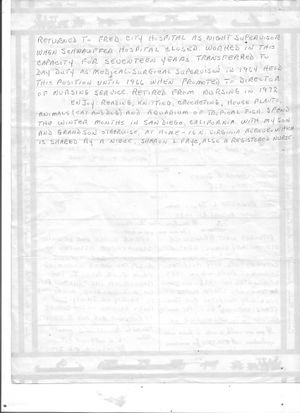 RETURNED TO FRED. CITY HOSPITAL AS NIGHT SUPERVISOR
WHEN SCHNAUFFER HOSPITAL CLOSED. WORKED IN THIS
CAPACITY FOR SEVENTEEN YEARS TRANSFERRED TO
DAY DUTY AS MEDICAL-SURGICAL SUPERVISOR IN 1964 HELD
THIS POSITION UNTIL 1966 WHEN PROMOTED TO DIRECTOR
OF NURSING SERVICE RETIRED FROM NURSING IN 1972
ENJOY READING, KNITTING, CROCHETING, HOUSE PLANTS,
ANIMALS (CAT AND DOG) AND AQUARIUM OF TROPICAL FISH. SPEND
THE WINTER MONTHS IN SAN DIEGO, CALIFORNIA WITH MY SON
AND GRANDSON OTHERWISE, AT HOME - 16 N. VIRGINIA AVENUE, WHICH
IS SHARED BY A NIECE, SHARON L. ALSO A REGISTERED NURSE